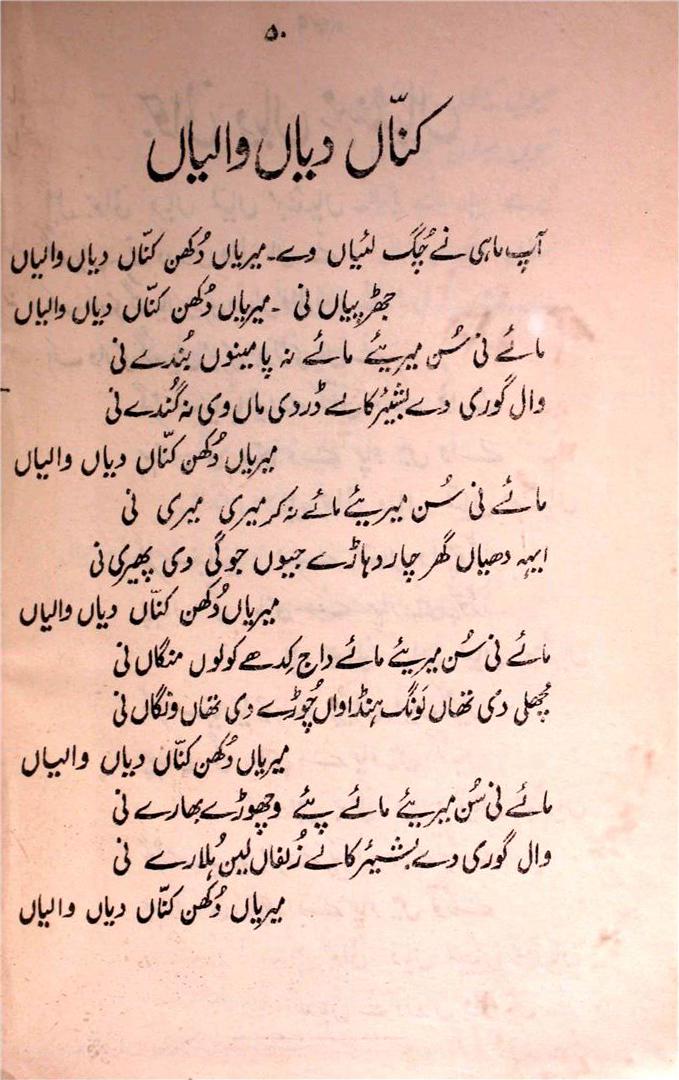 ۵۰
کنّاں دیاں والیاں
آپ ماہی نے چُگ لئیاں وے۔ میریاں دُکھن کنّاں دیاں والیاں
جھڑ پیاں نی ۔ میریاں دُکھن کنّاں دیاں والیاں
مائے نی سُن میریئے مائے نہ پا مینوں بُندے نی
وال گوری دے بشیئر کالے ڈردی ماں وی نہ گُندے نی
میریاں دُکھن کنّاں دیاں والیاں
مائے نی سُن میریئے مائے نہ کر میری میری نی
ایہہ دھیاں گھر چار دہاڑے جیوں جوگی دی پھیری نی
میریاں دُکھن کنّاں دیاں والیاں
مائے نی سُن میریئے مائے داج کِدھے کولوں منگاں نی
مُچھلی دی تھاں لَونگ ہنڈاواں چُوڑے دی تھاں ونگاں نی
میریاں دُکھن کنّاں دیاں والیاں
مائے نی سُن میریئے مائے پئے وچھوڑے بھارے نی
وال گوری دے بشیئر کالے زُلفاں لین ہُلارے نی
میریاں دُکھن کنّاں دیاں والیاں